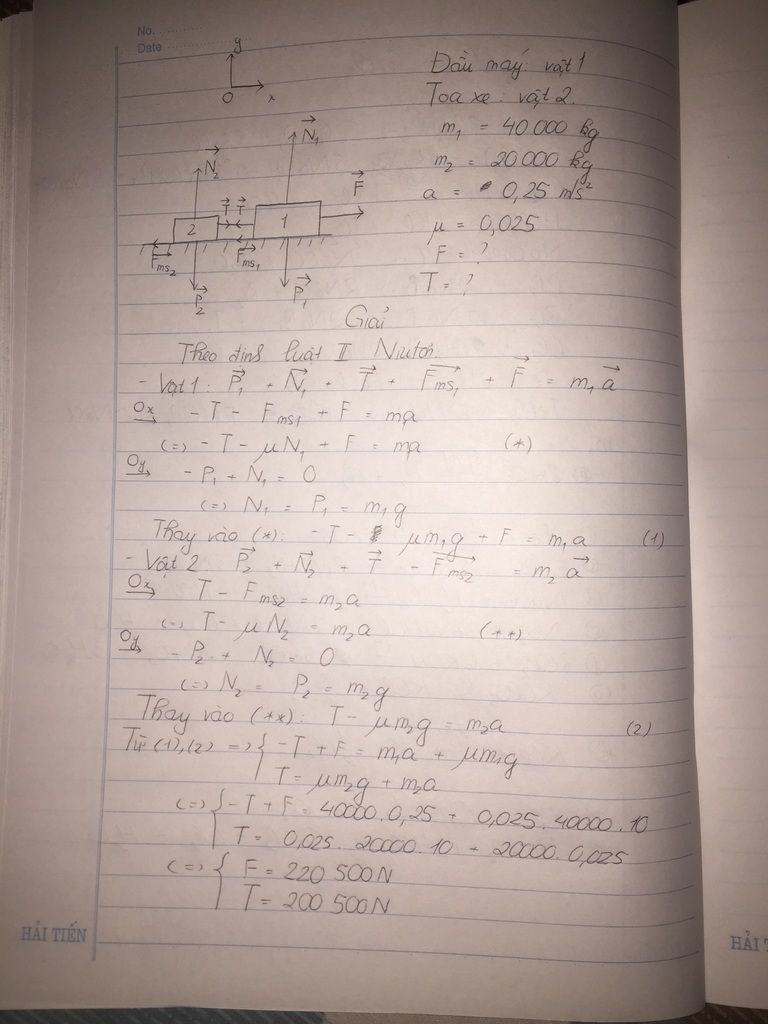 No.
Date
y
O x
Đầu máy: vật 1
Toa xe: vật 2.
m₁ = 40 000 kg
m₂ = 20 000 kg
a = 0,25 m/s²
μ = 0,025
F = ?
T = ?
N₁
N₂
F
T T
2 1
Fms₂ Fms₁
P₂ P₁
Giải
Theo định luật II Niutơn.
- Vật 1: P₁ + N₁ + T + Fms₁ + F = m₁a
Ox - T - Fms1 + F = ma
(=) - T - μN₁ + F = ma (*)
Oy - P₁ + N₁ = 0
(=) N₁ = P₁ = m₁g
Thay vào (*): - T - μm₁g + F = m₁a (1)
- Vật 2 P₂ + N₂ + T - Fms2 = m₂a
Ox T - Fms2 = m₂a
(=) T - μN₂ = m₂a (**)
Oy - P₂ + N₂ = 0
(=) N₂ = P₂ = m₂g
Thay vào (**): T - μm₂g = m₂a (2)
Từ (1),(2) =) { - T + F = m₁a + μm₁g
T = μm₂g + m₂a
(=) { - T + F = 40000.0,25 + 0,025.40000.10
T = 0,025.20000.10 + 20000.0,025
(=) { F = 220 500N
T = 200 500N
HẢI TIẾN
HẢI T